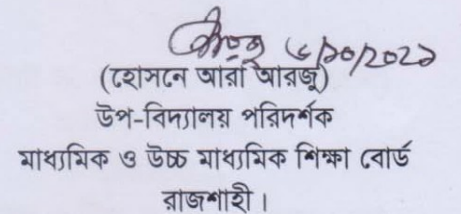 ৬/১০/২০২১
(হোসনে আরা আরজু)
উপ-বিদ্যালয় পরিদর্শক
মাধ্যমিক ও উচ্চ মাধ্যমিক শিক্ষা বোর্ড
রাজশাহী।